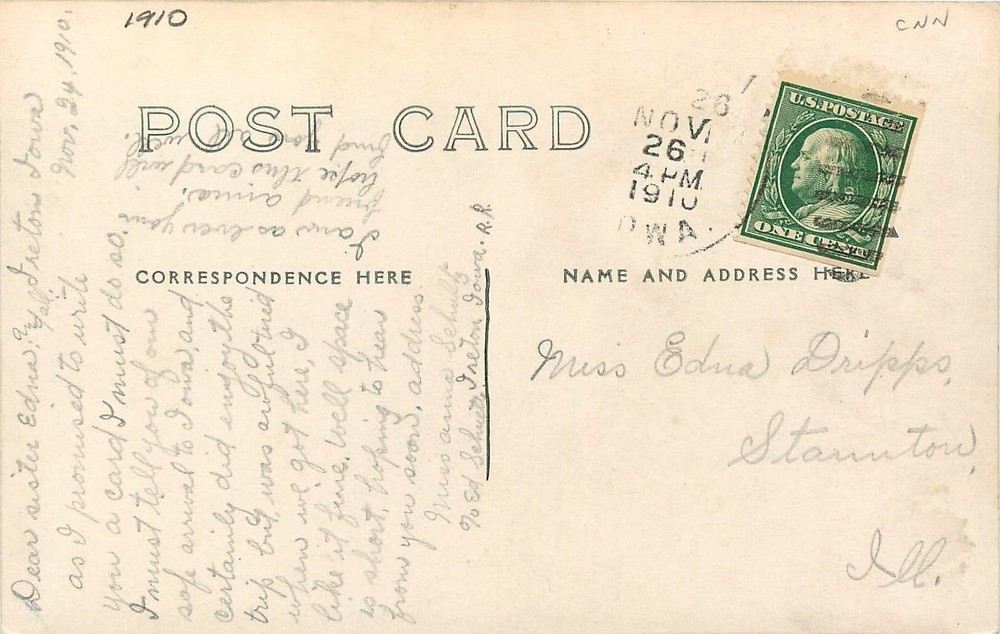 1910
CNN
POST CARD
26
NOV
26
4 PM
1910
OWA.
U.S. POSTAGE
ONE CENT
CORRESPONDENCE HERE
NAME AND ADDRESS HERE
Miss Edna Dripps,
Staunton,
Ill.
Ireton Iowa
Nov. 24, 1910.
Dear sister Edna:
as I promised to write
you a card I must do so.
I must tell you of our
safe arrival to Iowa, and
certainly did enjoy the
trip but was awful tired
when we got here, I
like it fine. Well space
is short, hoping to hear
from you soon, address
Miss Anna Schultz
℅ Ed Schultz Ireton Iowa. R.R.
I am as ever your
friend anna.
hope this card will
find you all well.